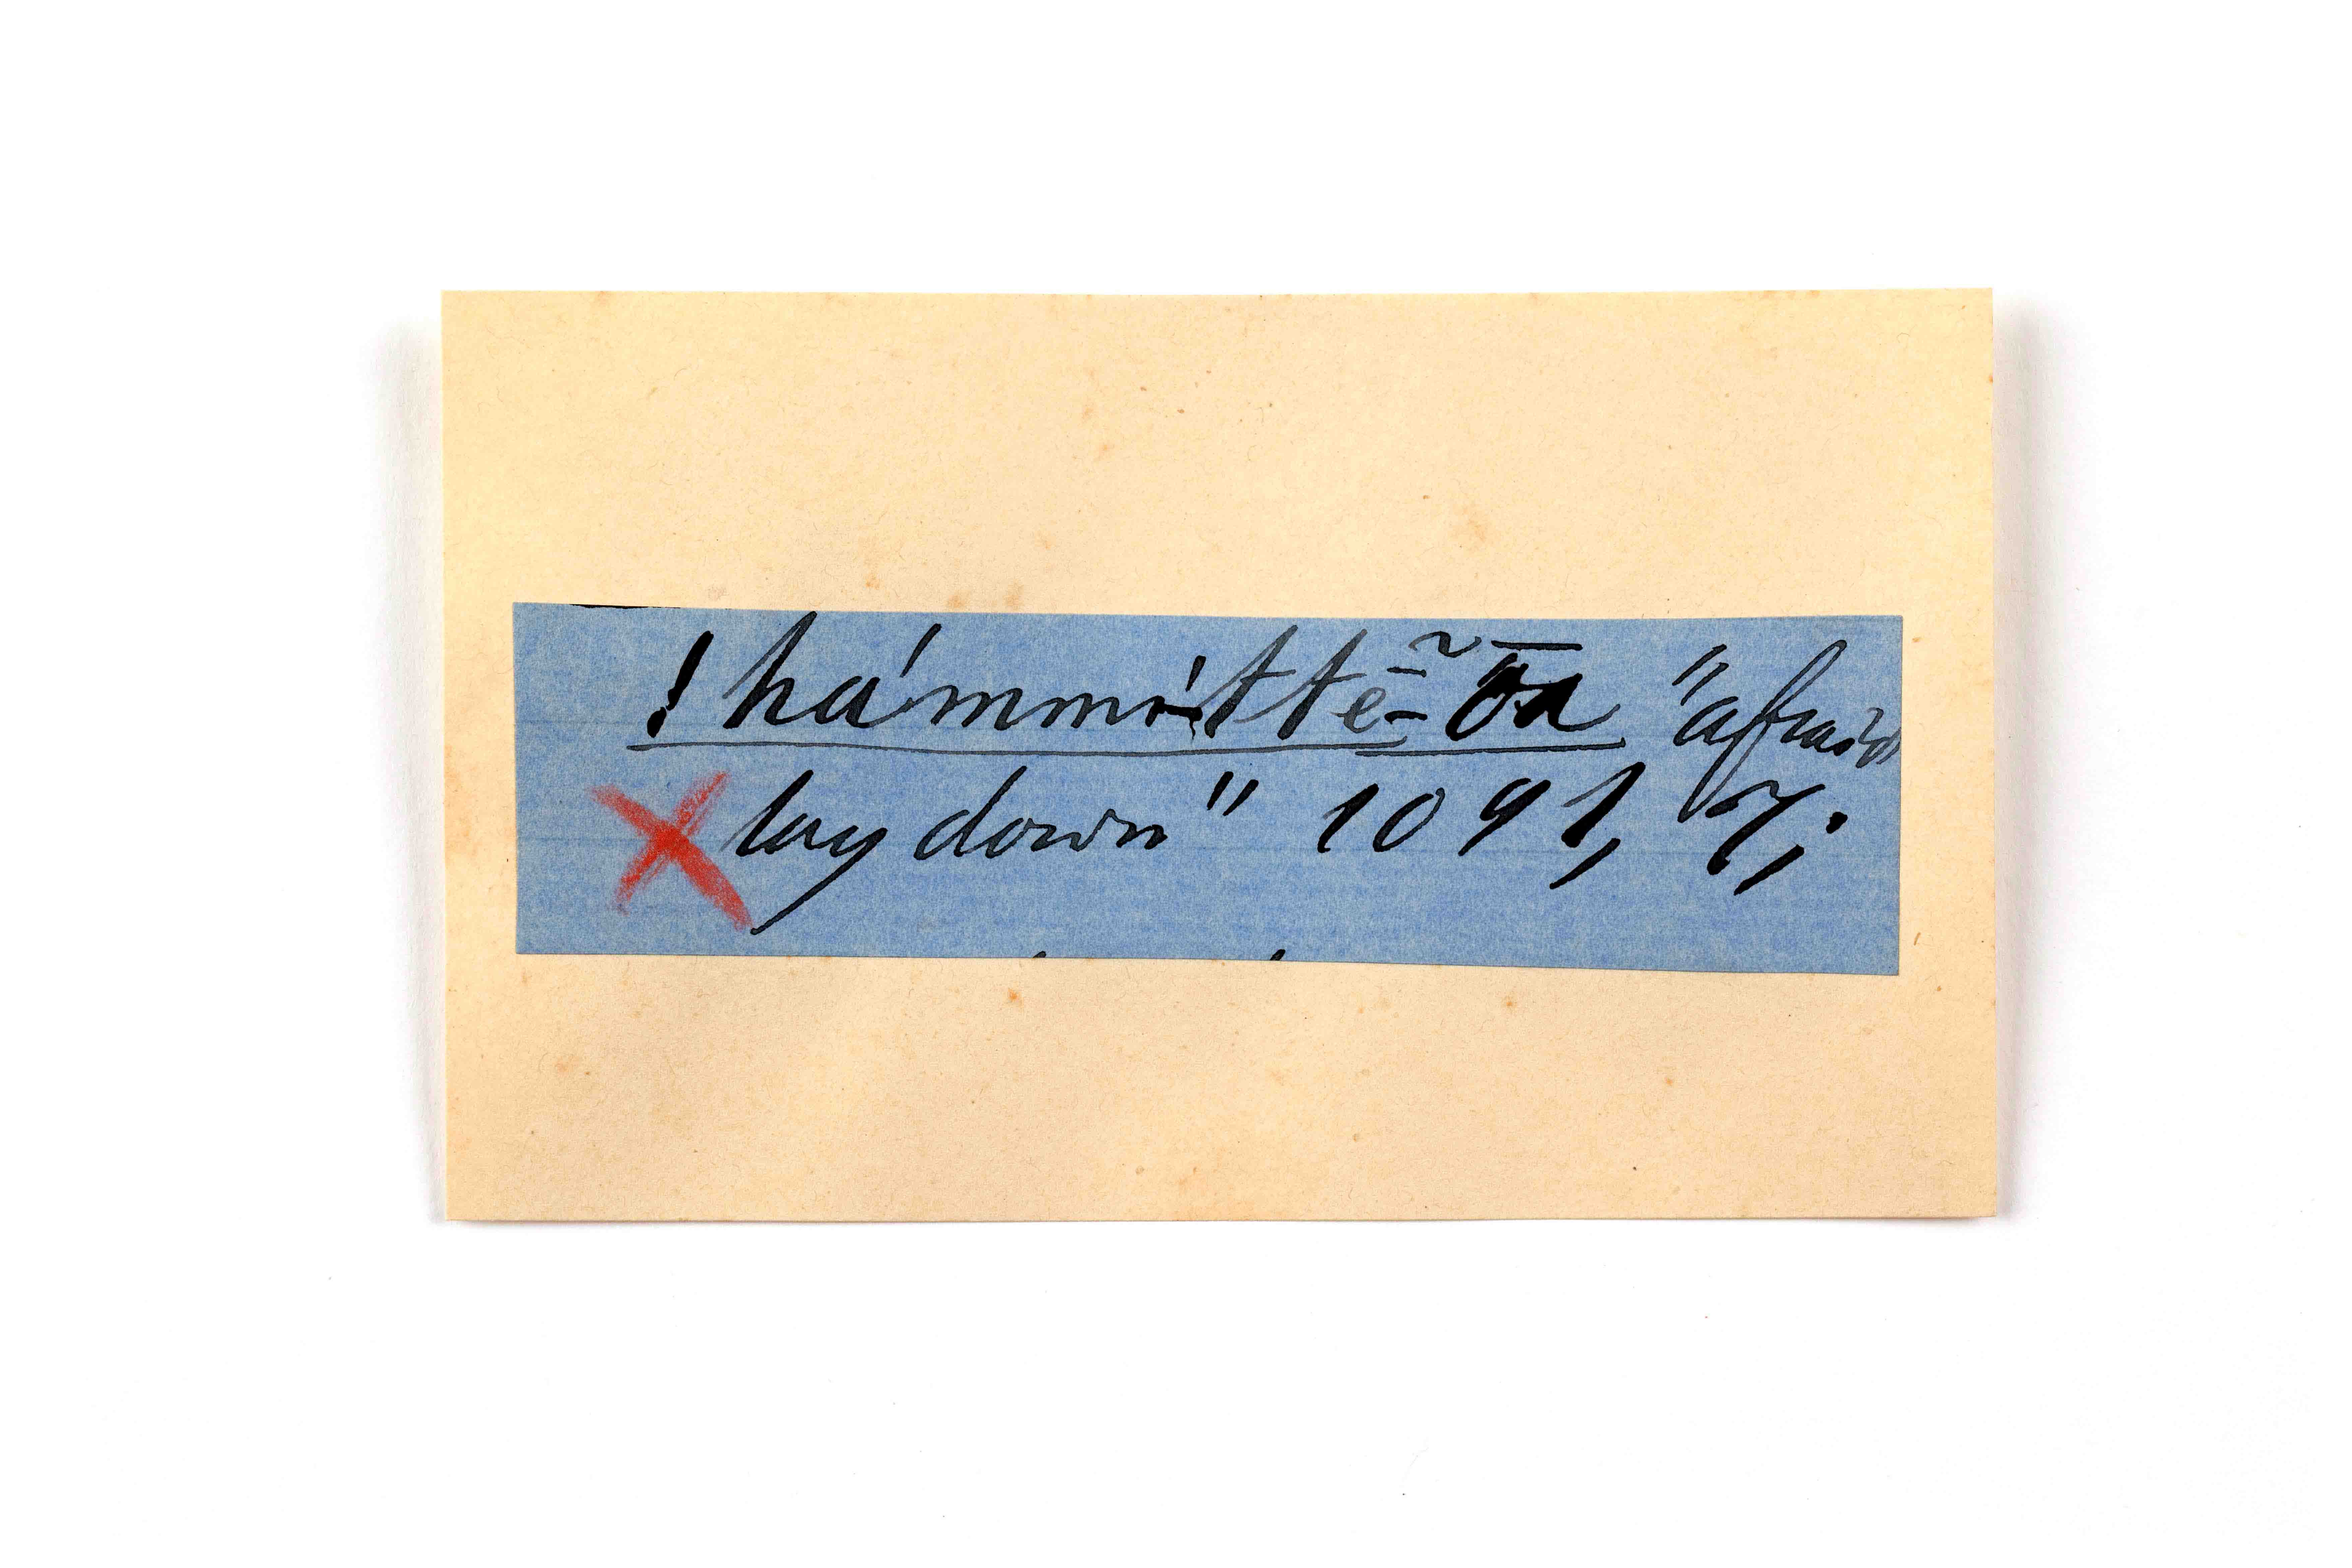 !hámmí-ttē-͠ōa "afraid
lay down" 1091, 7;